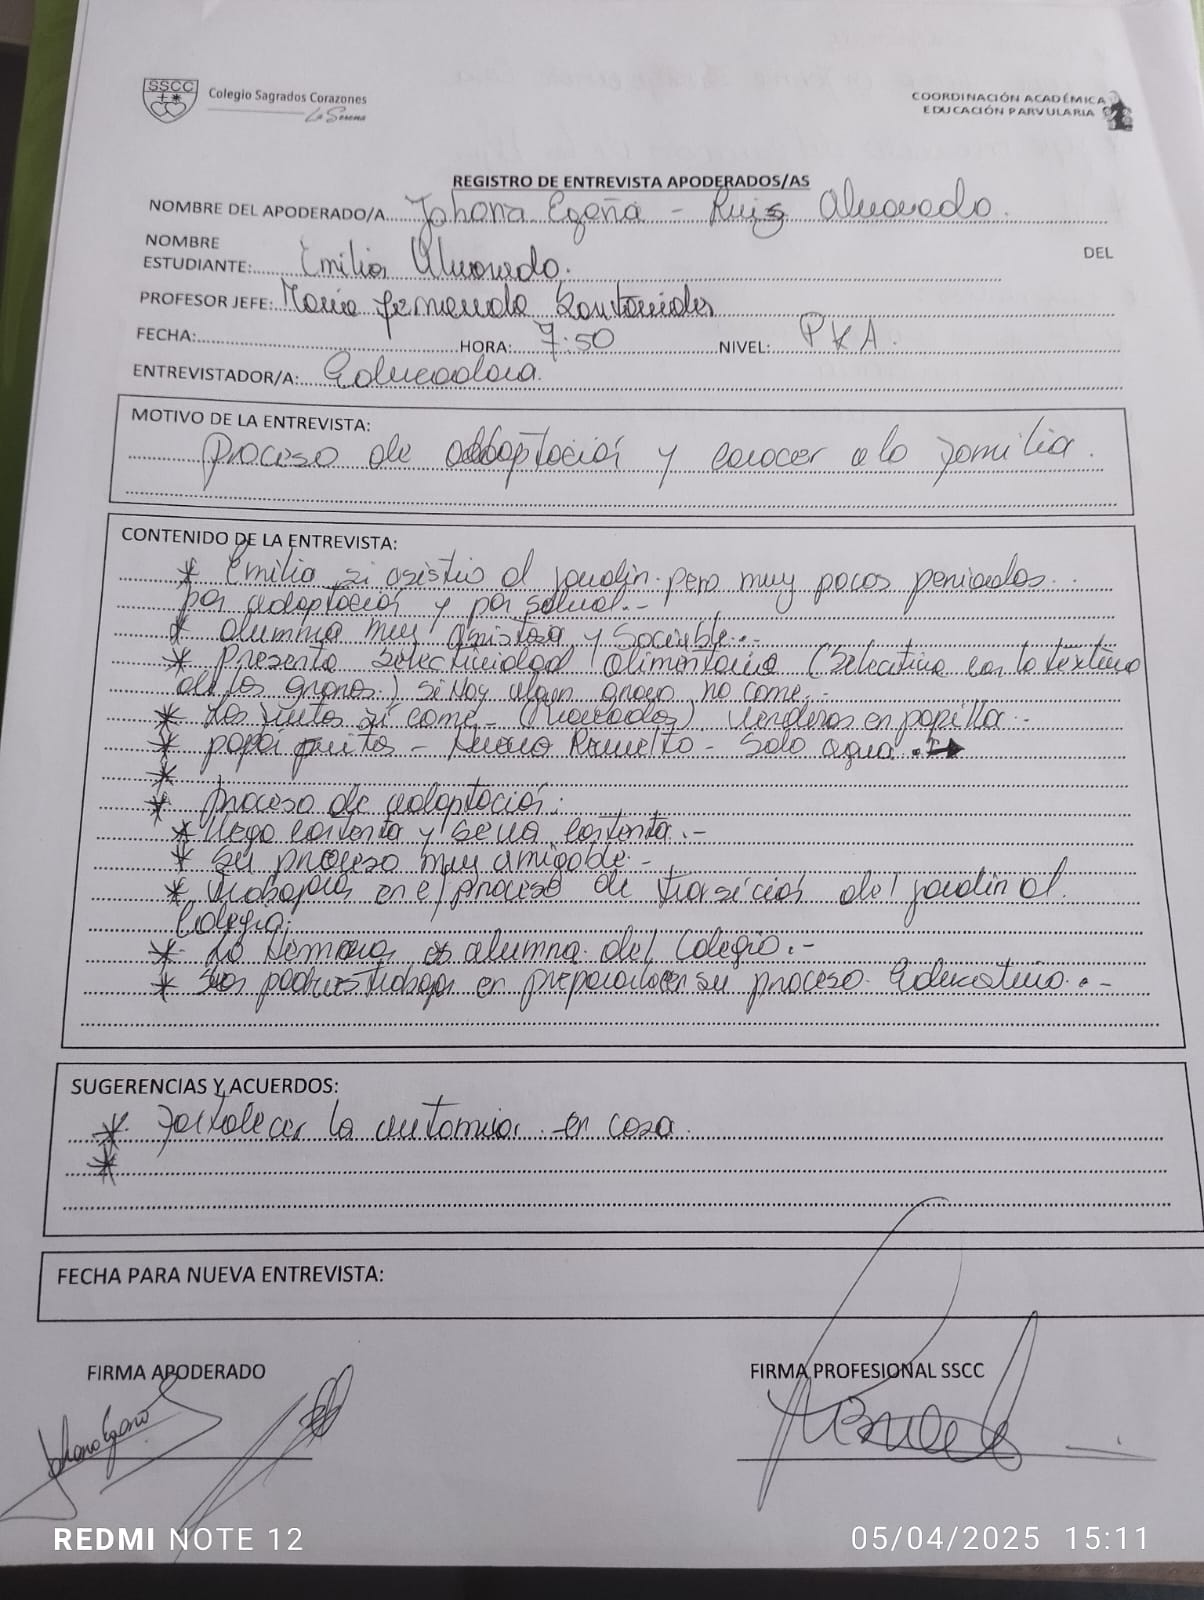 SSCC
Colegio Sagrados Corazones
La Serena
COORDINACIÓN ACADÉMICA
EDUCACIÓN PARVULARIA
REGISTRO DE ENTREVISTA APODERADOS/AS
NOMBRE DEL APODERADO/A Johana Egaña - Luis Alvarado.
NOMBRE DEL
ESTUDIANTE: Emilia Alvarado.
PROFESOR JEFE: Maria fernanda
FECHA: HORA: 7:50 NIVEL: PKA.
ENTREVISTADOR/A: Educadora.
MOTIVO DE LA ENTREVISTA:
Proceso de adaptación y conocer a la familia.
CONTENIDO DE LA ENTREVISTA:
* Emilia si asistio al jardin pero muy pocos periodos
por adaptación y por salud.-
* alumna muy amistosa y sociable.-
* Presenta selectividad alimentaria (selectiva con la textura
de los granos.) si hay algun grano no come.-
* Las frutas si come - (Picadas) verduras en papilla.-
* papas fritas - Huevo Revuelto - Solo agua.
*
* Proceso de adaptación:
* llega contenta y se va contenta.-
* su proceso muy amigable.-
* en el proceso de trasición del jardin al
Colegio.
* alumna del Colegio.-
* Sus padres trabajan en su proceso Educativo.-
SUGERENCIAS Y ACUERDOS:
* Fortalecer la autonomia en casa.
*
FECHA PARA NUEVA ENTREVISTA:
FIRMA APODERADO FIRMA PROFESIONAL SSCC
REDMI NOTE 12 05/04/2025 15:11